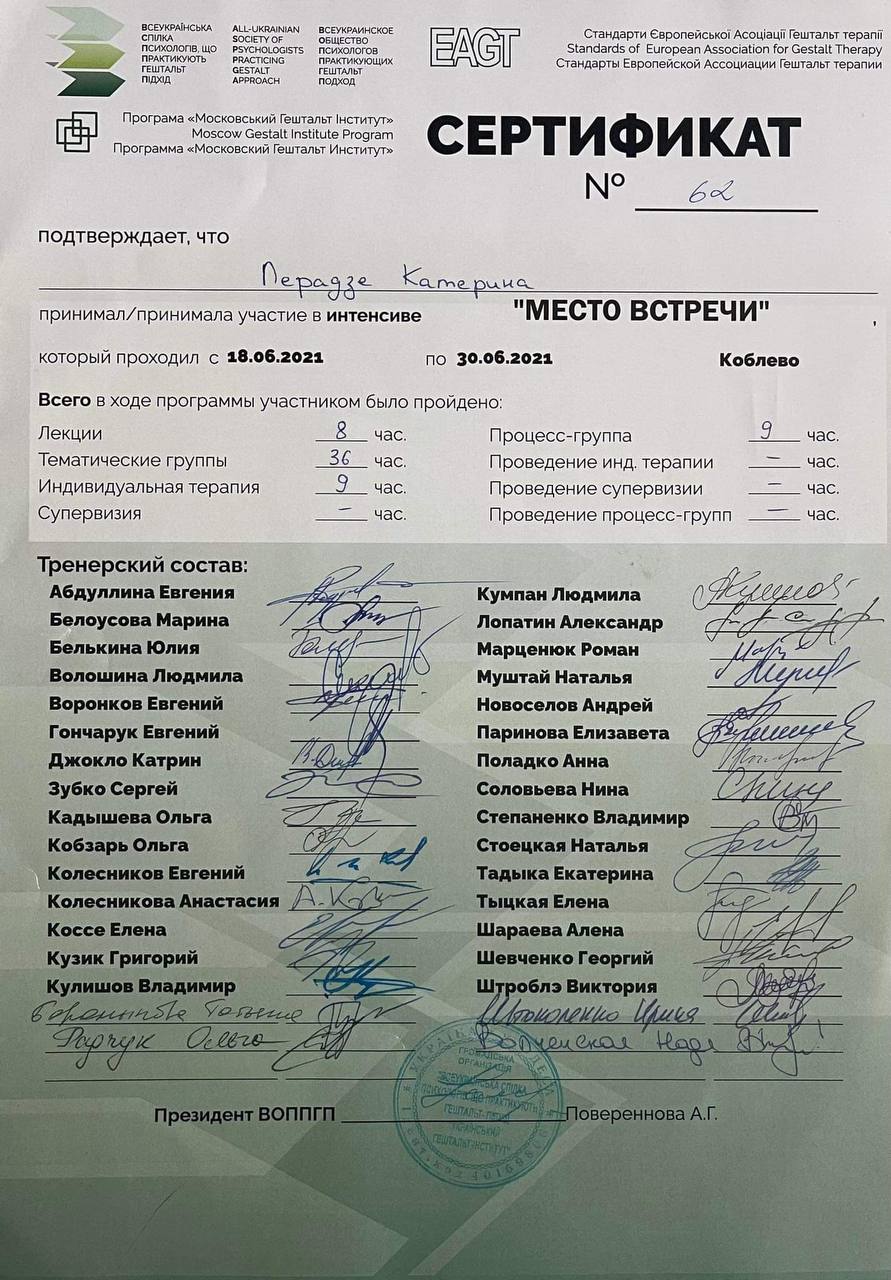 ВСЕУКРАЇНСЬКА
СПІЛКА
ПСИХОЛОГІВ, ЩО
ПРАКТИКУЮТЬ
ГЕШТАЛЬТ
ПІДХІД
ALL-UKRAINIAN
SOCIETY OF
PSYCHOLOGISTS
PRACTICING
GESTALT
APPROACH
ВСЕУКРАИНСКОЕ
ОБЩЕСТВО
ПСИХОЛОГОВ
ПРАКТИКУЮЩИХ
ГЕШТАЛЬТ
ПОДХОД
EAGT
Стандарти Європейської Асоціації Гештальт терапії
Standards of European Association for Gestalt Therapy
Стандарты Европейской Ассоциации Гештальт терапии
Програма «Московський Гештальт Інститут»
Moscow Gestalt Institute Program
Программа «Московский Гештальт Институт»
СЕРТИФИКАТ
№ 62
подтверждает, что
Перадзе Катерина
принимал/принимала участие в интенсиве "МЕСТО ВСТРЕЧИ" ,
который проходил с 18.06.2021 по 30.06.2021 Коблево
Всего в ходе программы участником было пройдено:
Лекции 8 час. Процесс-группа 9 час.
Тематические группы 36 час. Проведение инд. терапии – час.
Индивидуальная терапия 9 час. Проведение супервизии – час.
Супервизия – час. Проведение процесс-групп – час.
Тренерский состав:
Абдуллина Евгения Кумпан Людмила
Белоусова Марина Лопатин Александр
Белькина Юлия Марценюк Роман
Волошина Людмила Муштай Наталья
Воронков Евгений Новоселов Андрей
Гончарук Евгений Паринова Елизавета
Джокло Катрин Поладко Анна
Зубко Сергей Соловьева Нина
Кадышева Ольга Степаненко Владимир
Кобзарь Ольга Стоецкая Наталья
Колесников Евгений Тадыка Екатерина
Колесникова Анастасия Тыцкая Елена
Коссе Елена Шараева Алена
Кузик Григорий Шевченко Георгий
Кулишов Владимир Штроблэ Виктория
Татьяна Ирина
Радчук Ольга Надя
Президент ВОППГП Повереннова А.Г.
ГРОМАДСЬКА
ОРГАНІЗАЦІЯ
"ВСЕУКРАЇНСЬКА СПІЛКА